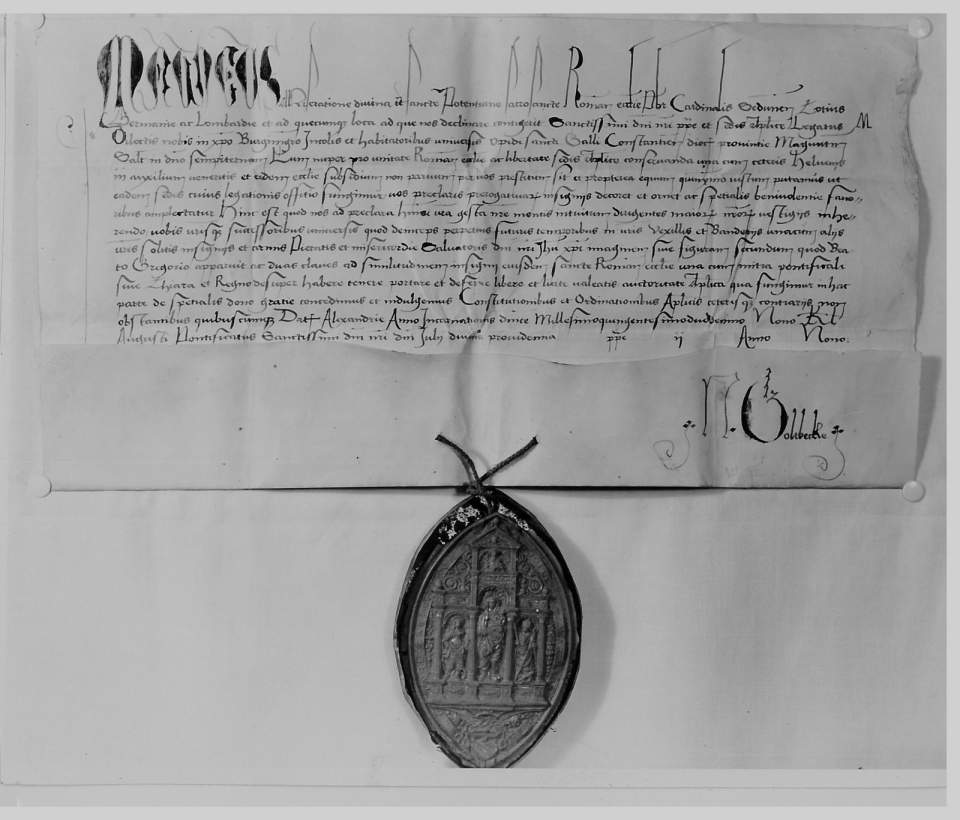 Matheus Miseratione divina tt sancte Potentiane sacrosancte Roman ecclie Pbr Cardinalis Sedunen Totius
Germanie ac Lombardie et ad quecunqz loca ad que nos declinare contigerit Sanctissimi dni nri ppe et sedis aplice Legatus
Dilectis nobis in xpo Incolis et habitatoribus universis Opidi Sancti Galli Constantien dioc provintie Maguntin
Salt in dno sempiternam Cum nuper pro unitate Roman ecclie ac libertate sedis aplice conservanda una cum ceteris helvetiis
in auxilium veneritis et eidem ecclie subsidium non parvum per vos prestitum sit et propterea equum quinymo iustum putamus ut
eadem sedes cuius legationis offitio fungimur vos preclaris prerogativarum insignijs decoret et ornet ac spetialis benivolentie favo-
ribus amplectatur Hinc est quod nos ad preclara gesta nre mentis intuitum dirigentes maiorum vestigijs inhe-
rendo vobis vrisqz successoribus universis quod deinceps perpetuis futuris temporibus in vris Vexillis et Banderijs unacum alijs
vris solitis insignijs et armis Pietatis et misericordie Salvatoris dni nri Jhu xpi imaginem sive figuram secundum quod Bea-
to Gregorio apparuit ac duas claves ad similitudinem insigni eiusdem sancte Roman ecclie una cum mitra pontificali
sive Thyara et Regno desuper habere tenere portare et deferre libere et licite valeatis auctoritate aplica qua fungimur in hac
parte de spetialis dono gratie concedimus et indulgemus Constitutionibus et Ordinationibus Aplicis ceterisqz contrarijs non
obstantibus quibuscunqz Dat Alexandrie Anno Incarnationis dnice Millesimoquingentesimoduodecimo Nono Kl
Augusti Pontificatus Sanctissimi dni nri dni Julij divina providentia ppe ij Anno Nono
N. Golibecke